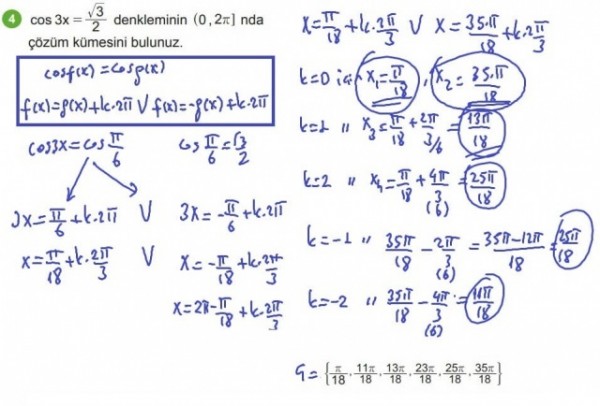 4 cos 3x = √3/2 denkleminin (0, 2π] nda
çözüm kümesini bulunuz.
cosf(x)=cosg(x)
f(x)=g(x)+k.2π V f(x)=-g(x)+k.2π
cos3x=cos π/6 cos π/6 = √3/2
3x=π/6+k.2π V 3x=-π/6+k.2π
x=π/18+k.2π/3 V x=-π/18+k.2π/3
x=2π-π/18+k.2π/3
x=π/18+k.2π/3 V x=35.π/18+k.2π/3
k=0 için x₁=π/18, x₂=35.π/18
k=1 " x₃=π/18+2π/3/6=13π/18
k=2 " x₄=π/18+4π/3(6)=25π/18
k=-1 " 35π/18-2π/3(6)=35π-12π/18=25π/18
k=-2 " 35π/18-4π/3(6)=11π/18
Ç={π/18, 11π/18, 13π/18, 23π/18, 25π/18, 35π/18}